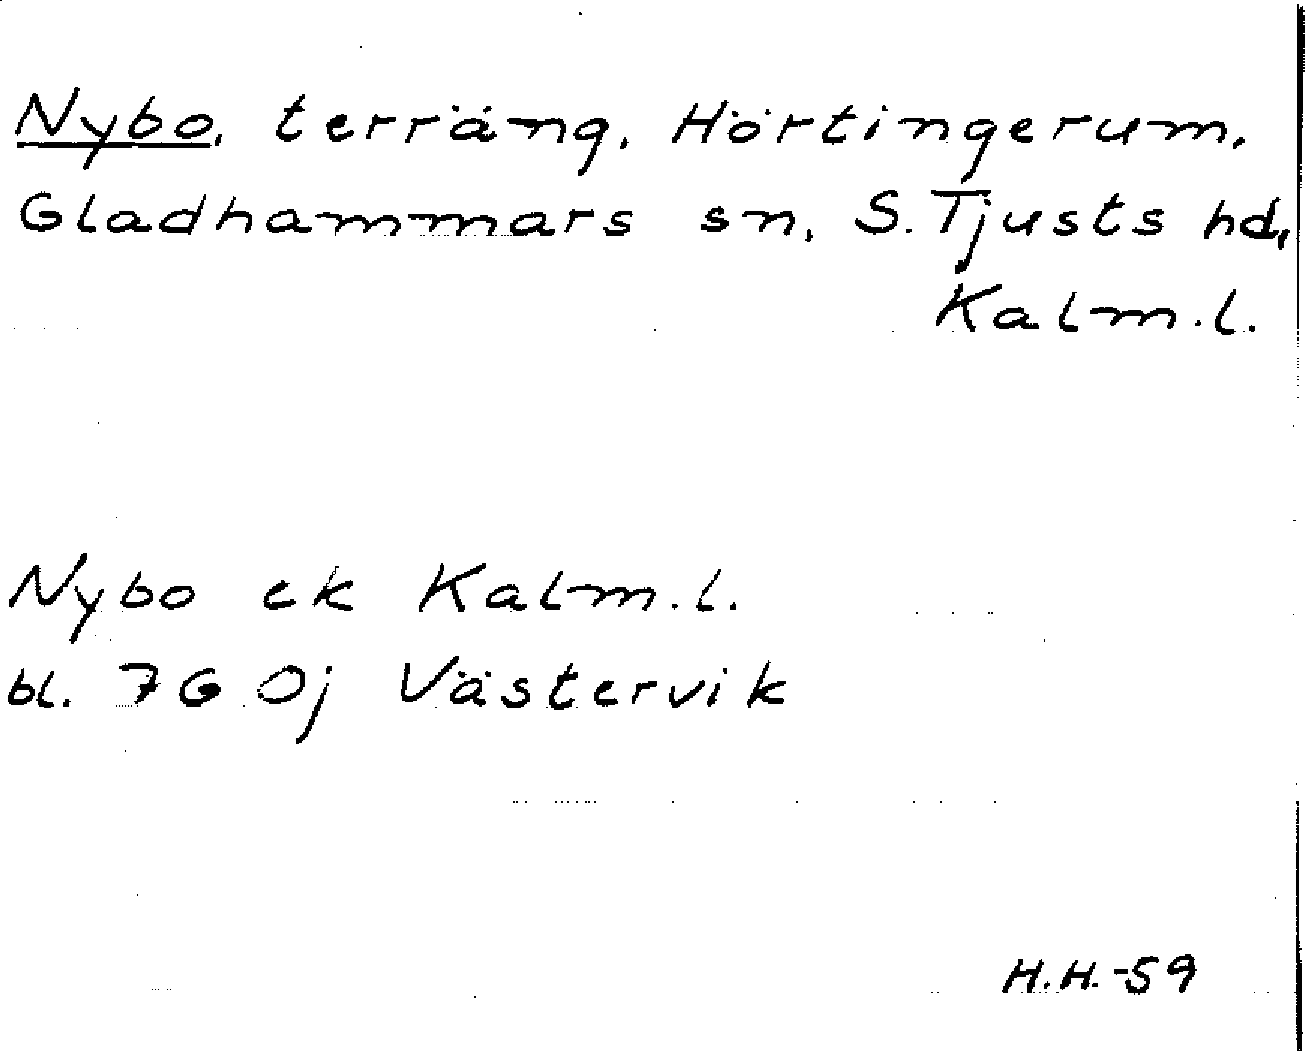 Nybo, terräng, Hörtingerum,
Gladhammars sn, S. Tjusts hd,
Kalm. l.
Nybo ek Kalm. l.
bl. 7G 0j Västervik
H.H.-59